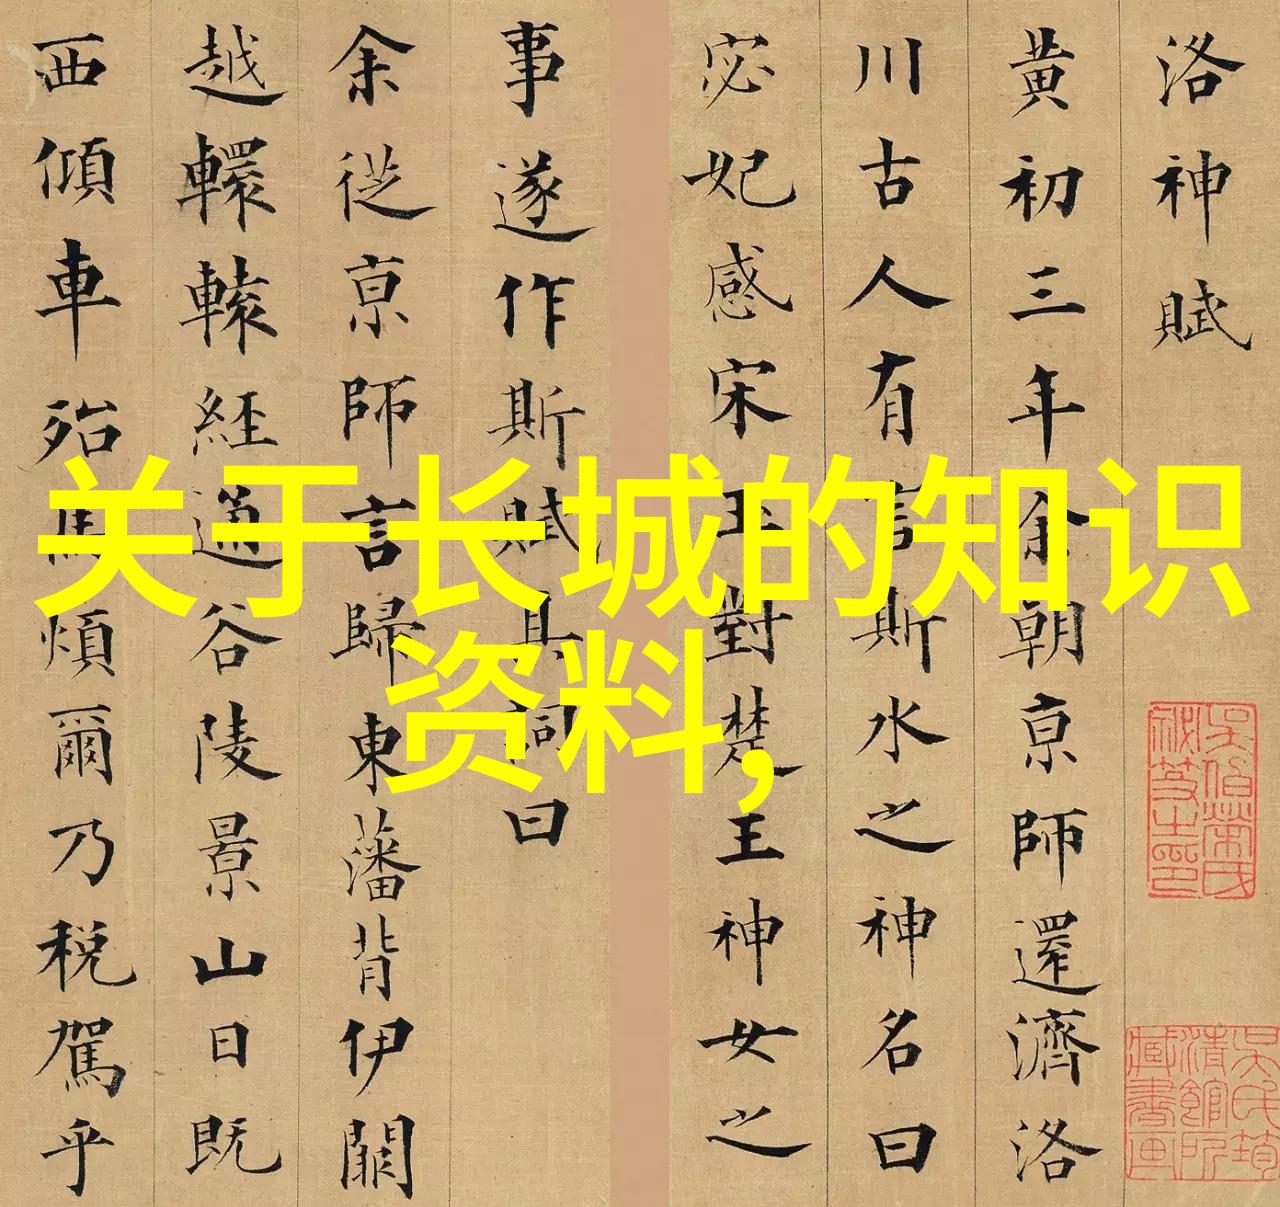 洛神賦
黄初三年余朝京師還濟洛
川古人有言斯水之神名曰
宓妃感宋玉對楚王神女之
事遂作斯賦其詞曰
余從京師言歸東藩背伊闕
越轘轅經通谷陵景山日既
西傾車殆馬煩爾乃税駕乎
关于长城的知识
资料,